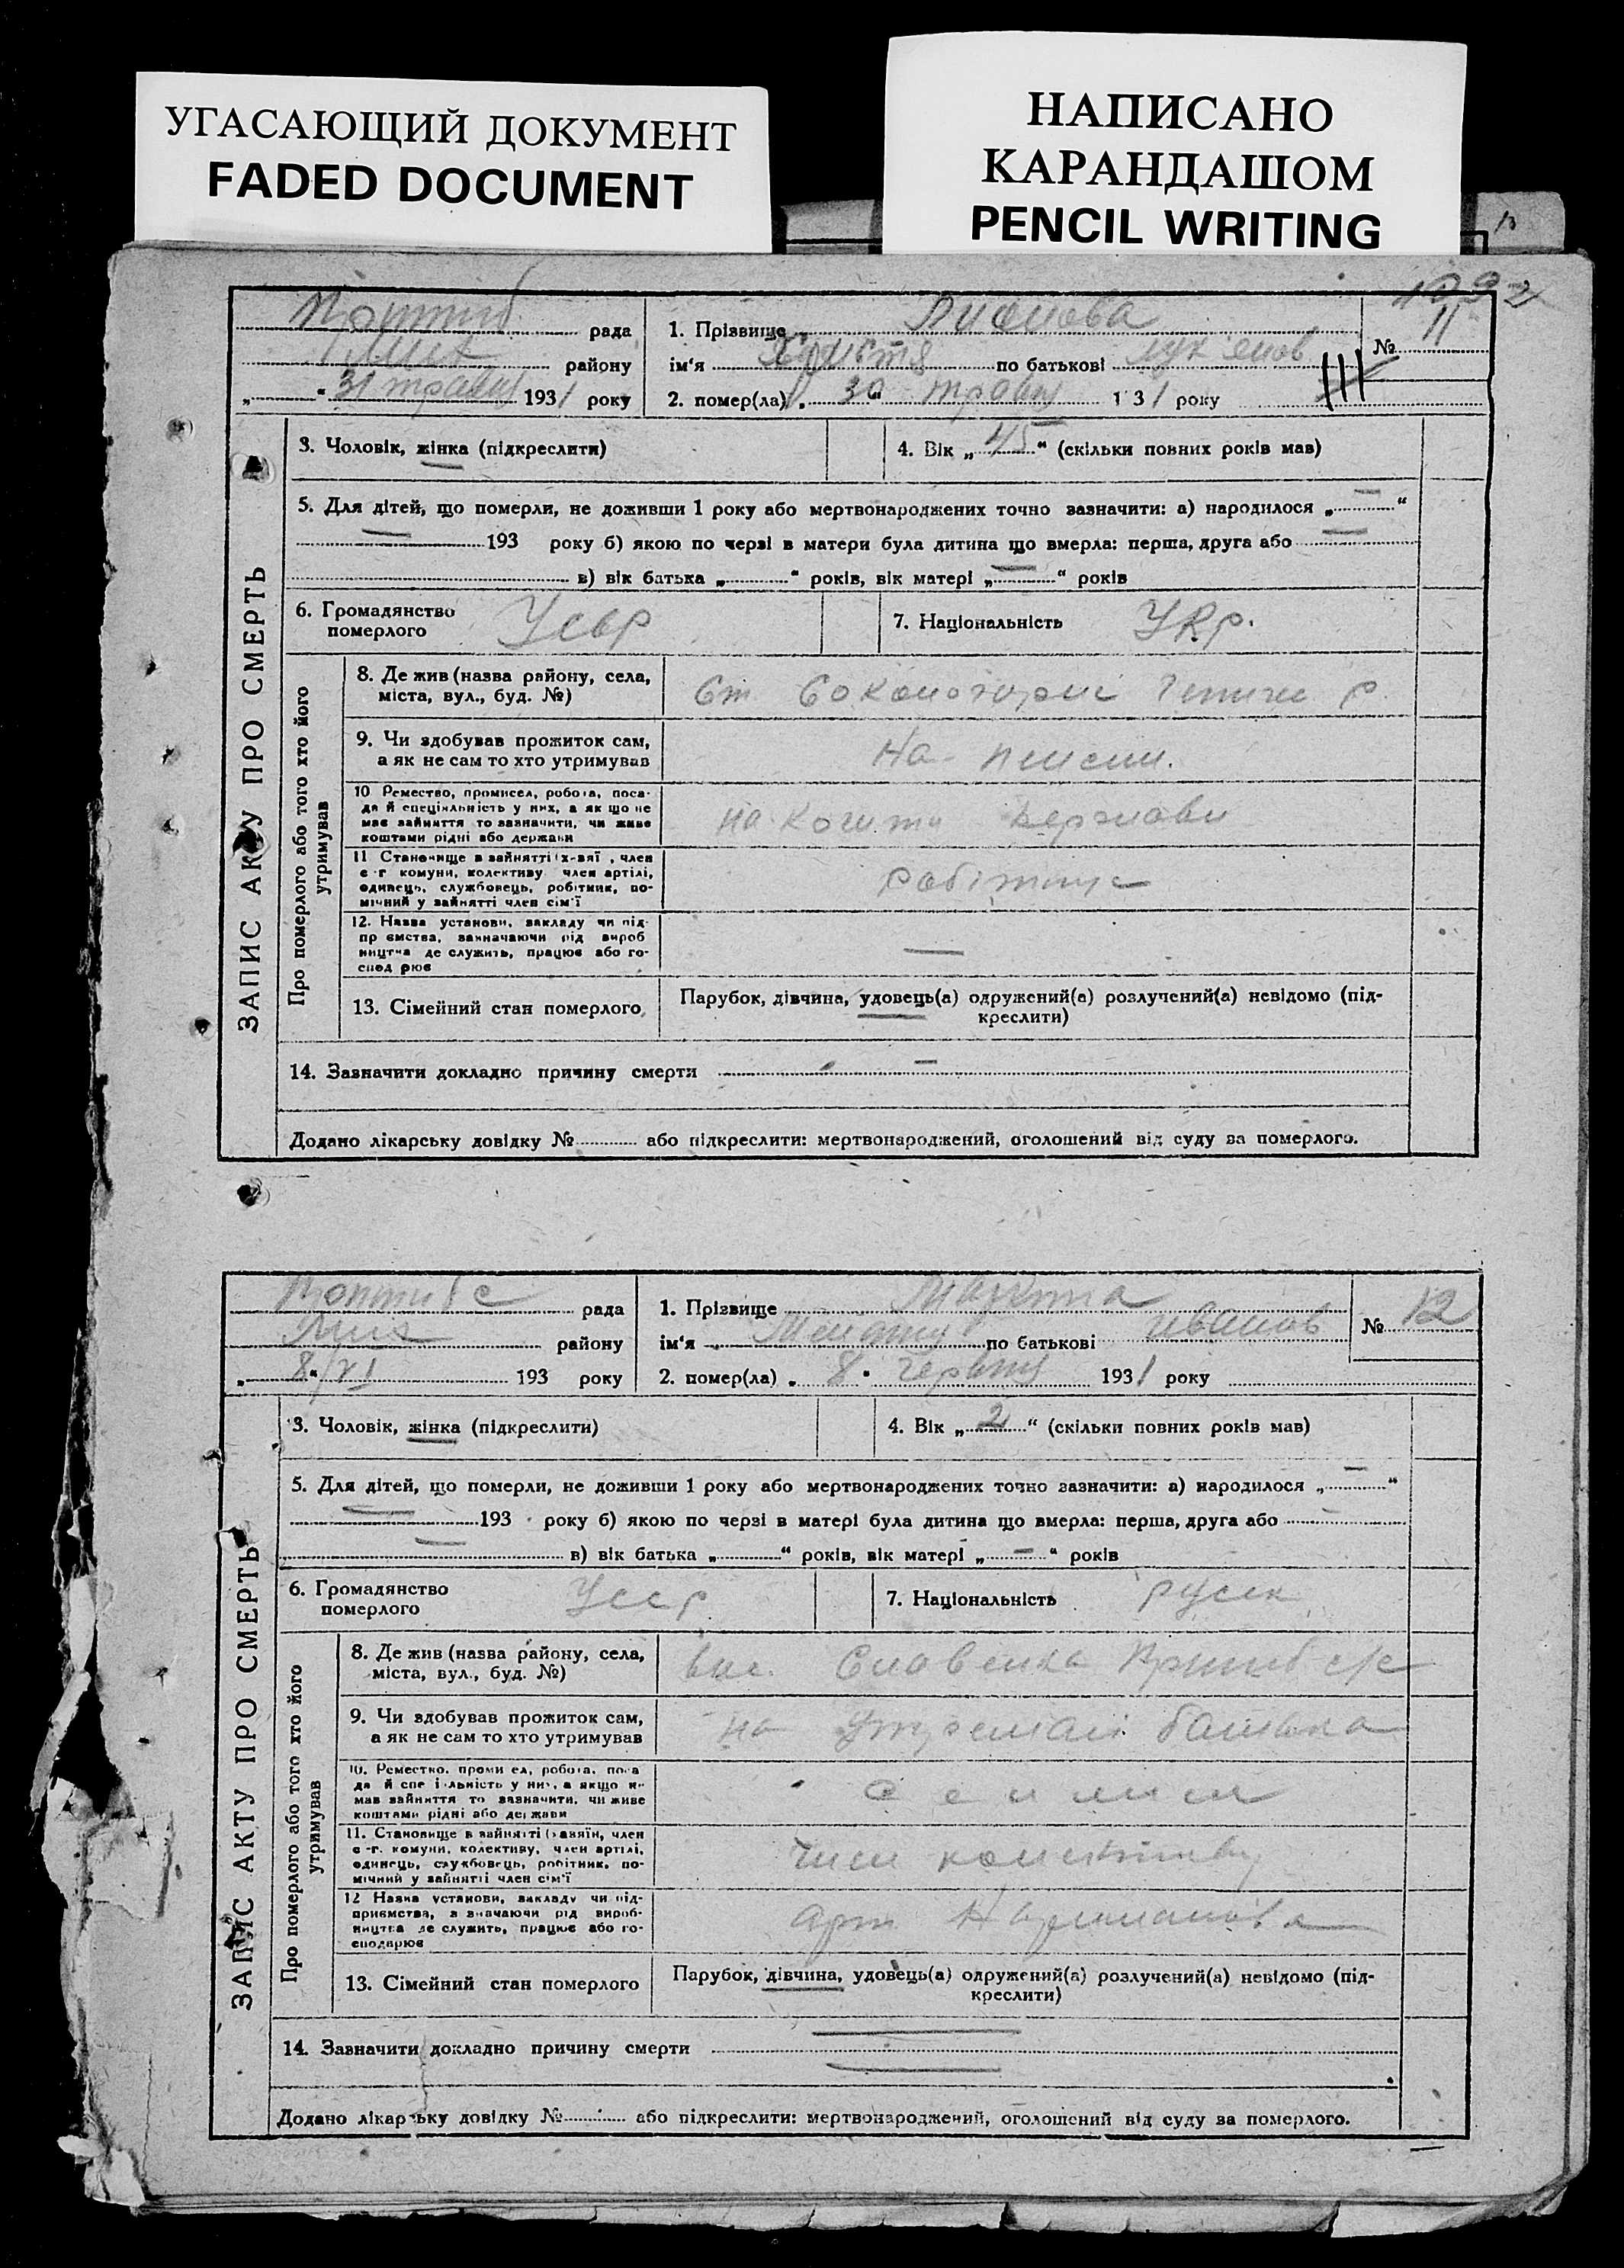 УГАСАЮЩИЙ ДОКУМЕНТ
FADED DOCUMENT
НАПИСАНО
КАРАНДАШОМ
PENCIL WRITING
рада
району
31 травня 1931 року
1. Прізвище
ім'я Христя по батькові
2. помер(ла) „ 30 “ травня 1 31 року
№ 11
ЗАПИС АКТУ ПРО СМЕРТЬ
3. Чоловік, жінка (підкреслити)
4. Вік „ 45 “ (скільки повних років мав)
5. Для дітей, що померли, не доживши 1 року або мертвонароджених точно зазначити: а) народилося „ — “
— 193 року б) якою по черзі в матери була дитина що вмерла: перша, друга або —
в) вік батька „ “ років, вік матері „ — “ років
6. Громадянство
померлого
Усср
7. Національність Укр.
Про померлого або того хто його
утримував
8. Де жив (назва району, села,
міста, вул., буд. №)
9. Чи здобував прожиток сам,
а як не сам то хто утримував
На пенсии.
10 Ремество, промисел, робота, поса-
да й спеціяльність у них, а як що не
має зайняття то зазначити, чи живе
коштами рідні або держави
на кошти держави
11 Становище в зайнятті член
с-г комуни, колективу член артілі,
одинець, службовець, робітник, по-
мічний у зайнятті член сім'ї
робітниця
12. Назва установи, закладу чи під-
пр ємства, зазначаючи рід вироб
ництва де служить, працює або го-
спод рює
—
13. Сімейний стан померлого
Парубок, дівчина, удовець(а) одружений(а) розлучений(а) невідомо (під-
креслити)
14. Зазначити докладно причину смерти —
Додано лікарську довідку № або підкреслити: мертвонароджений, оголошений від суду за померлого.
рада
району
8/VI 193 року
1. Прізвище
ім'я по батькові Иванов
2. помер(ла) „ 8 “ червня 1931 року
№ 12
ЗАПИС АКТУ ПРО СМЕРТЬ
3. Чоловік, жінка (підкреслити)
4. Вік „ 2 “ (скільки повних років мав)
5. Для дітей, що померли, не доживши 1 року або мертвонароджених точно зазначити: а) народилося „ — “
— 193 року б) якою по черзі в матері була дитина що вмерла: перша, друга або —
— в) вік батька „ “ років, вік матері „ — “ років
6. Громадянство
померлого
Усср
7. Національність руск
Про померлого або того хто його
утримував
8. Де жив (назва району, села,
міста, вул., буд. №)
с/с
9. Чи здобував прожиток сам,
а як не сам то хто утримував
на батька
10. Ремество, проми ел, робота, поса
да й спе і льність у них, а якщо н-
мав зайняття то зазначити, чи живе
коштами рідні або держави
11. Становище в зайнятті член
с-г. комуни, колективу, член артілі,
одинець, службовець, робітник, по-
мічний у зайнятті член сім'ї
член колективу
12 Назва установи, закладу чи під-
приємства, з значаючи рід вироб-
ництва де служить, працює або го-
сподарює
арт
13. Сімейний стан померлого
Парубок, дівчина, удовець(а) одружений(а) розлучений(а) невідомо (під-
креслити)
14. Зазначити докладно причину смерти
Додано лікарську довідку № або підкреслити: мертвонароджений, оголошений від суду за померлого.